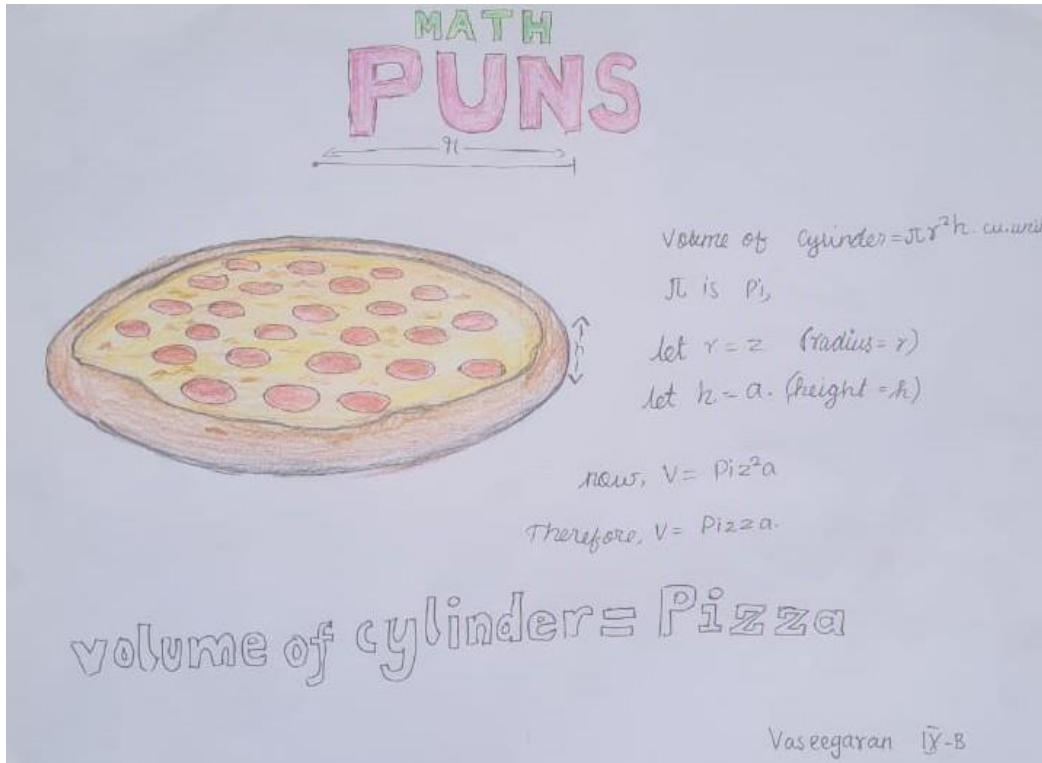 MATH
PUNS
r
volume of cylinder = πr²h. cu. uni
π is Pi,
let r = z (radius = r)
let h = a. (height = h)
h
now, V = Piz²a
Therefore, V = Pizza.
volume of cylinder = Pizza
Vaseegaran IX-B